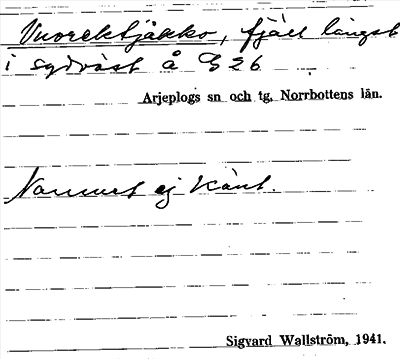 Vuorektjåkko, fjäll längst
i sydväst å G26
Arjeplogs sn och tg, Norrbottens län.
Namnet ej känt.
Sigvard Wallström, 1941.